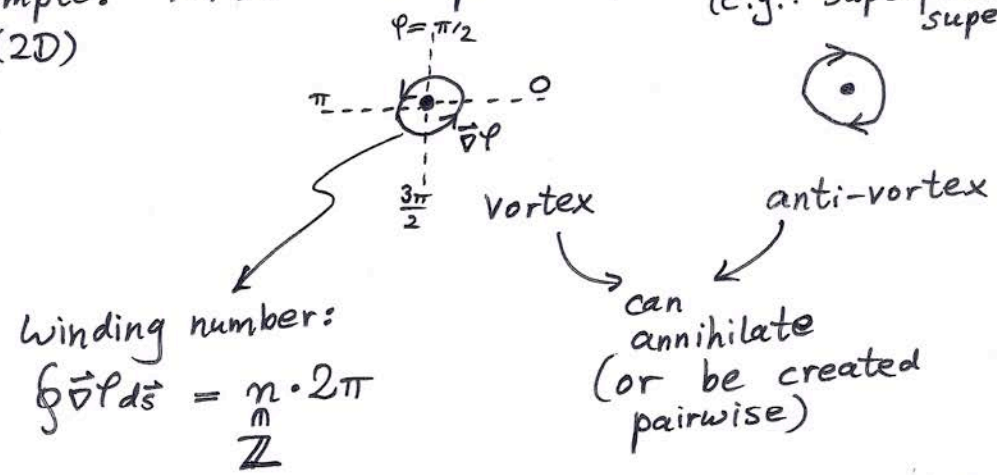 (2D)
φ= π/2
π
0
∇⃗φ
3π/2
vortex
anti-vortex
can
annihilate
(or be created
pairwise)
Winding number:
∮∇⃗φds⃗ = n·2π
∈
ℤ